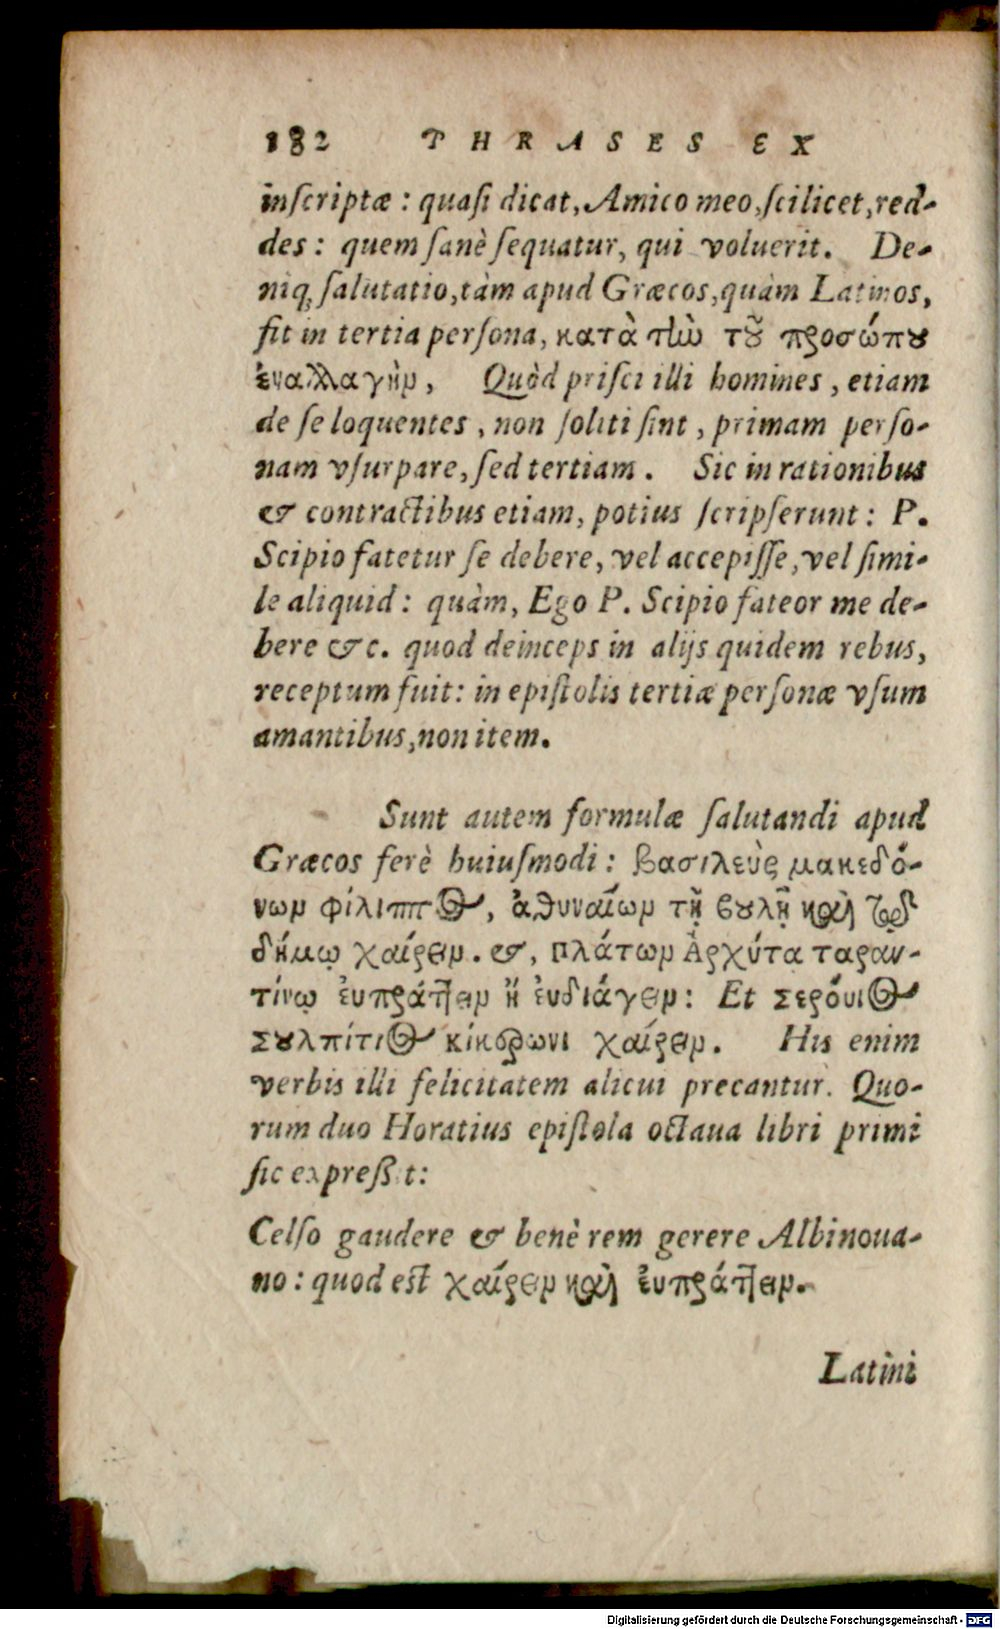 182 THRASES EX
inſcriptæ : quaſi dicat, Amico meo, ſcilicet, red-
des : quem ſanè ſequatur, qui voluerit. De-
niq; ſalutatio, tàm apud Græcos, quàm Latinos,
fit in tertia perſona, κατὰ τὼ τȣ͂ προσώπȣ
ἐναλλαγὴν, Quòd priſci illi homines, etiam
de ſe loquentes, non ſoliti ſint, primam perſo-
nam vſurpare, ſed tertiam. Sic in rationibus
& contractibus etiam, potius ſcripſerunt : P.
Scipio fatetur ſe debere, vel accepiſſe, vel ſimi-
le aliquid : quàm, Ego P. Scipio fateor me de-
bere &c. quod deinceps in alijs quidem rebus,
receptum fuit : in epiſtolis tertiæ perſonæ vſum
amantibus, non item.
Sunt autem formulæ ſalutandi apud
Græcos ferè huiuſmodi : βασιλεὺς μακεδό-
νων φίλιππος, ἀθυναίων τῇ βȣλῇ καὶ τῷ
δήμῳ χαίρειν. &, πλάτων Ἀρχύτα ταραν-
τίνῳ ἐυπράττειν ἢ ἐυδιάγειν : Et σερόυιος
σȣλπίτιος κικέρωνι χαίρειν. His enim
verbis illi felicitatem alicui precantur. Quo-
rum duo Horatius epiſtola octaua libri primi
ſic expreßit :
Celſo gaudere & benè rem gerere Albinoua-
no : quod est χαίρειν καὶ ἐυπράττειν.
Latini
Digitalisierung gefördert durch die Deutsche Forschungsgemeinschaft - DFG